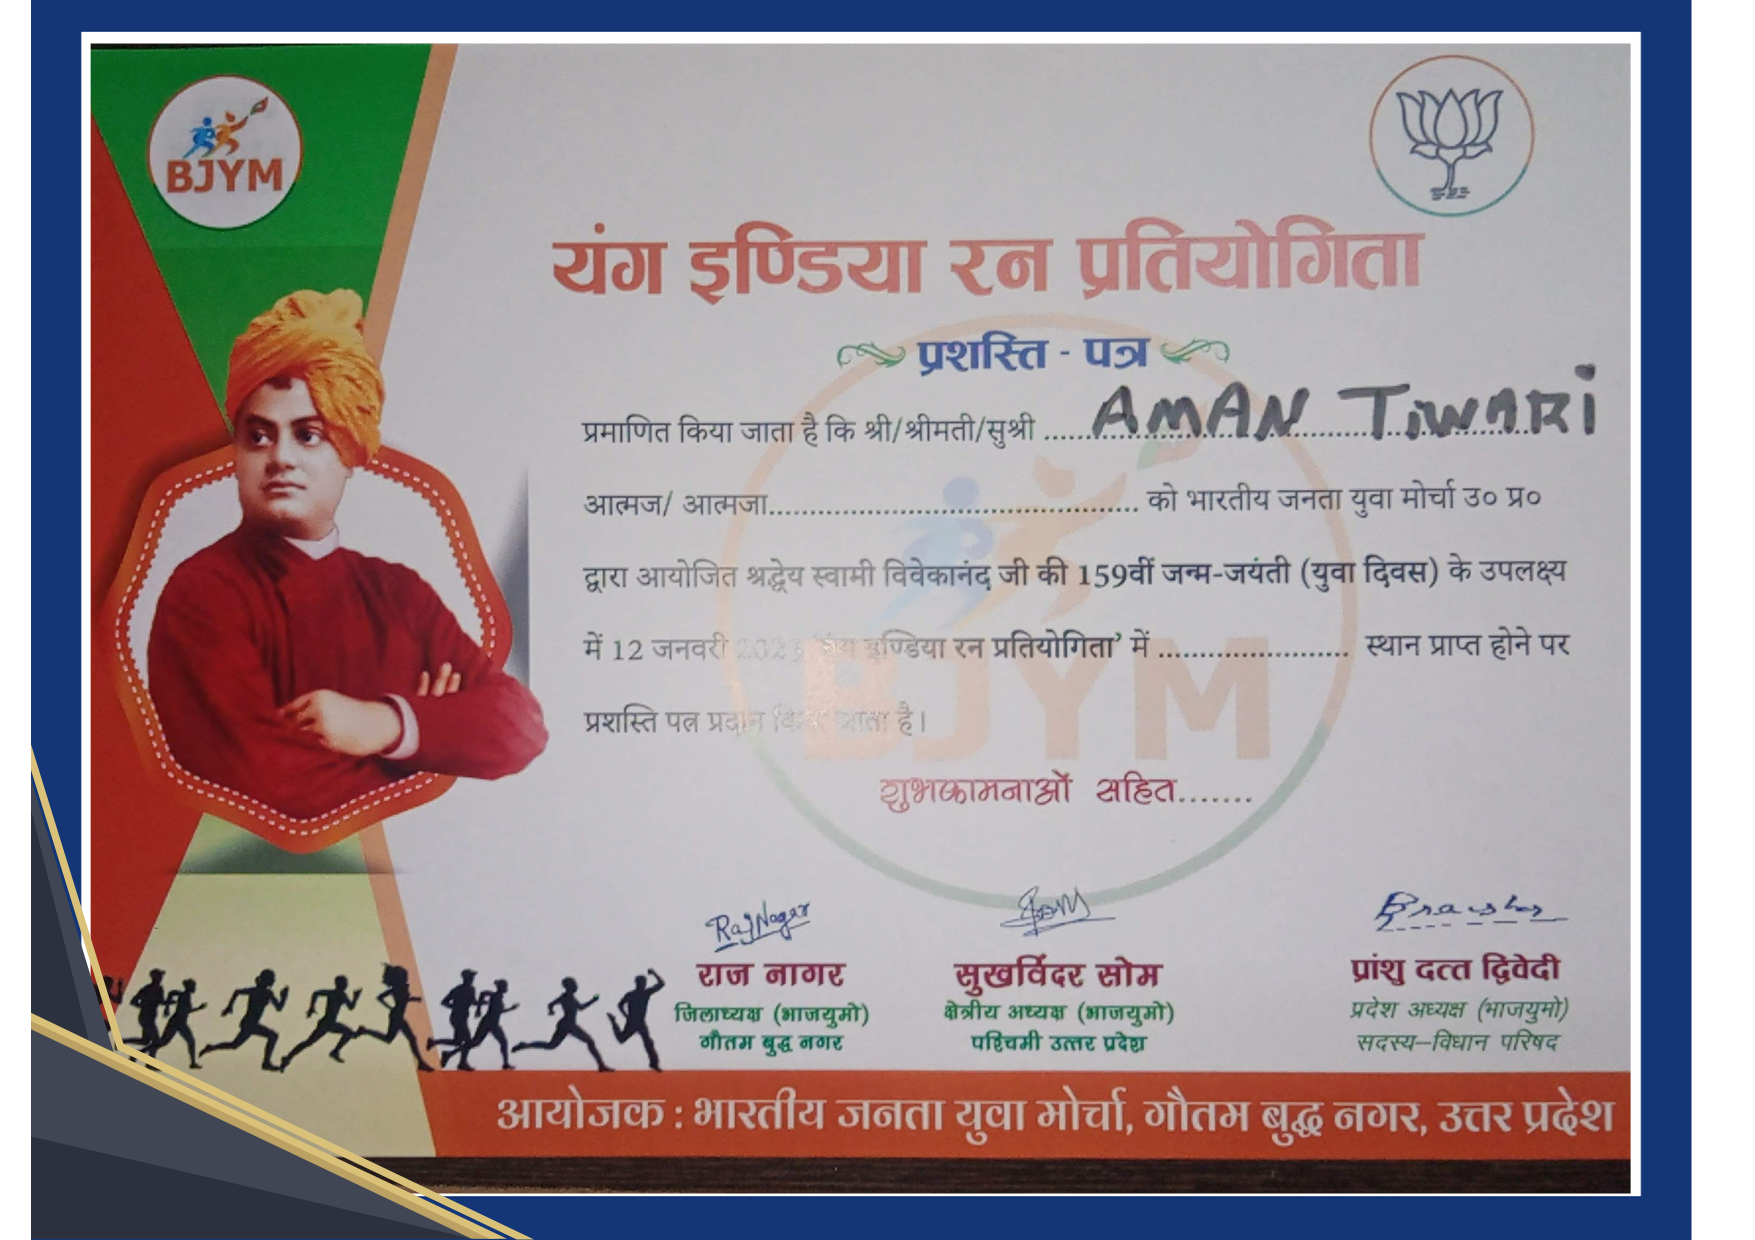 BJYM
यंग इण्डिया रन प्रतियोगिता
प्रशस्ति - पत्र
प्रमाणित किया जाता है कि श्री/श्रीमती/सुश्री ..... AMAN TIWARI
आत्मज/ आत्मजा.......................................... को भारतीय जनता युवा मोर्चा उ० प्र०
द्वारा आयोजित श्रद्धेय स्वामी विवेकानंद जी की 159वीं जन्म-जयंती (युवा दिवस) के उपलक्ष्य
में 12 जनवरी इण्डिया रन प्रतियोगिता’ में ...................... स्थान प्राप्त होने पर
प्रशस्ति पत्र प्रदान किया जाता है।
BJYM
शुभकामनाओं सहित.......
Raj Nagar
राज नागर
जिलाध्यक्ष (भाजयुमो)
गौतम बुद्ध नगर
सुखविंदर सोम
क्षेत्रीय अध्यक्ष (भाजयुमो)
पश्चिमी उत्तर प्रदेश
प्रांशु दत्त द्विवेदी
प्रदेश अध्यक्ष (भाजयुमो)
सदस्य–विधान परिषद
आयोजक : भारतीय जनता युवा मोर्चा, गौतम बुद्ध नगर, उत्तर प्रदेश